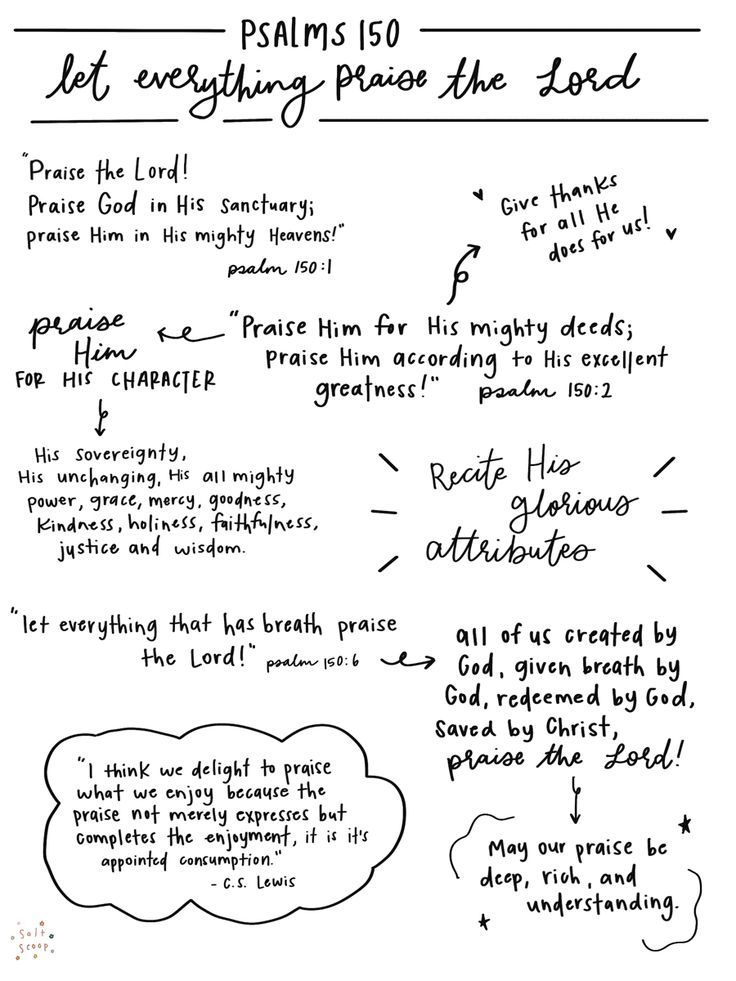 PSALMS 150
let everything praise the Lord
"Praise the Lord!
Praise God in His sanctuary;
praise Him in His mighty Heavens!"
psalm 150:1
Give thanks
for all He
does for us!
"Praise Him for His mighty deeds;
praise Him according to His excellent
greatness!" psalm 150:2
praise
Him
FOR HIS CHARACTER
His sovereignty,
His unchanging, His all mighty
power, grace, mercy, goodness,
kindness, holiness, faithfulness,
justice and wisdom.
Recite His
glorious
attributes
"let everything that has breath praise
the Lord!" psalm 150:6
all of us created by
God, given breath by
God, redeemed by God,
saved by Christ,
praise the Lord!
May our praise be
deep, rich, and
understanding.
"I think we delight to praise
what we enjoy because the
praise not merely expresses but
completes the enjoyment, it is it's
appointed consumption."
- C.S. Lewis
salt
scoop